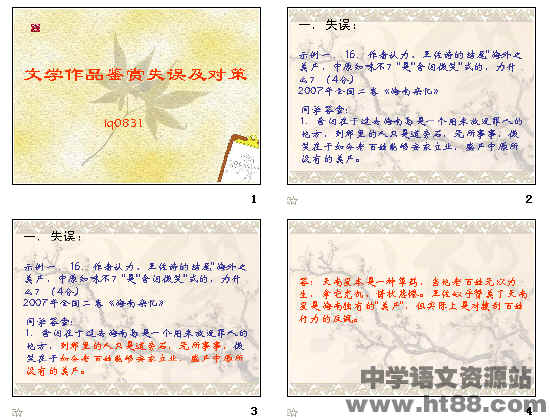 文学作品鉴赏失误及对策
iq0831
1
一. 失误:
示例一. 16. 作者认为, 王佐诗的结尾"海外之
美产, 中原知味不?"是"含泪微笑"式的, 为什
么? (4分)
2007年全国二卷《海南杂忆》
同学答案:
1. 含泪在于过去海南岛是一个用来放逐罪人的
地方, 到那里的人只是逗苦石, 无所事事, 微
笑在于如今老百姓能够安家立业, 盛产中原所
没有的美产。
2
一. 失误:
示例一. 16. 作者认为, 王佐诗的结尾"海外之
美产, 中原知味不?"是"含泪微笑"式的, 为什
么? (4分)
2007年全国二卷《海南杂忆》
同学答案:
1. 含泪在于过去海南岛是一个用来放逐罪人的
地方, 到那里的人只是逗苦石, 无所事事, 微
笑在于如今老百姓能够安家立业, 盛产中原所
没有的美产。
3
答: 天南星本是一种草药, 当地老百姓无以为
生, 拿它充饥, 情状悲惨。王佐似乎赞美了天南
星是海南独有的"美产", 但实际上是对搜刮百姓
行为的反讽。
4
中学语文资源站
www.ht88.com